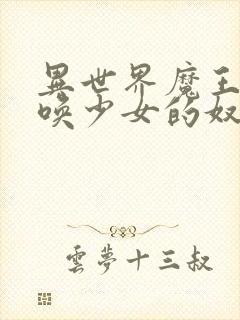 異世界魔王
喚少女的奴
雲夢十三叔